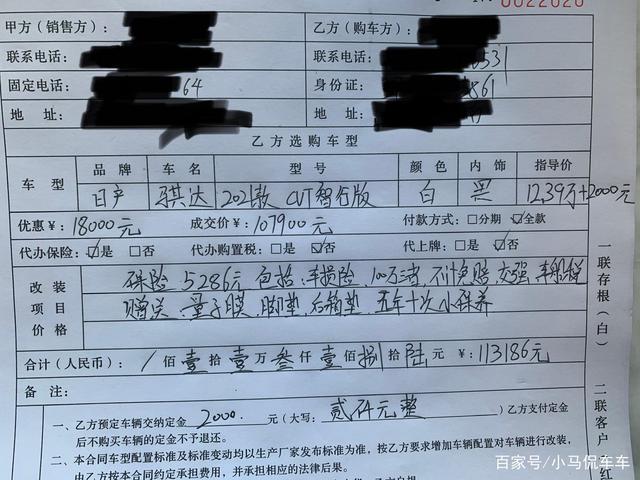 0022020
甲方(销售方): 乙方(购车方):
联系电话: 联系电话: 531
固定电话: 64 身份证: 861
地 址: 地 址:
乙方选购车型
车 型 品 牌 车 名 型 号 颜 色 内 饰 指导价
日产 骐达 2021款 CVT智行版 白 黑 12.39万+2000元
优惠¥18000元 成交价¥:107900元 付款方式:□分期 ☑全款
代办保险:☑是 □否 代办购置税:□是 ☑否 代上牌:□是 ☑否
改 装 保险 5286元 包括:车损险、100万三者、不计免赔、交强、车船税
项目 赠送 量子膜、脚垫、后箱垫、五年十次小保养
价 格
合计(人民币): / 佰 壹 拾 壹 万 叁 仟 壹 佰 捌 拾 陆 元 ¥:113186元
备 注:
一、乙方预定车辆交纳定金 2000. 元(大写: 贰仟元整 )乙方支付定金
后不购买车辆的定金不予退还。
二、本合同车型配置标准及标准变动均以生产厂家发布标准为准,按乙方要求增加车辆配置对车辆进行改装,
由乙方按本合同约定承担费用,并承担相应的法律后果。
一联存根(白)
二联客户(红
百家号/小马侃车车